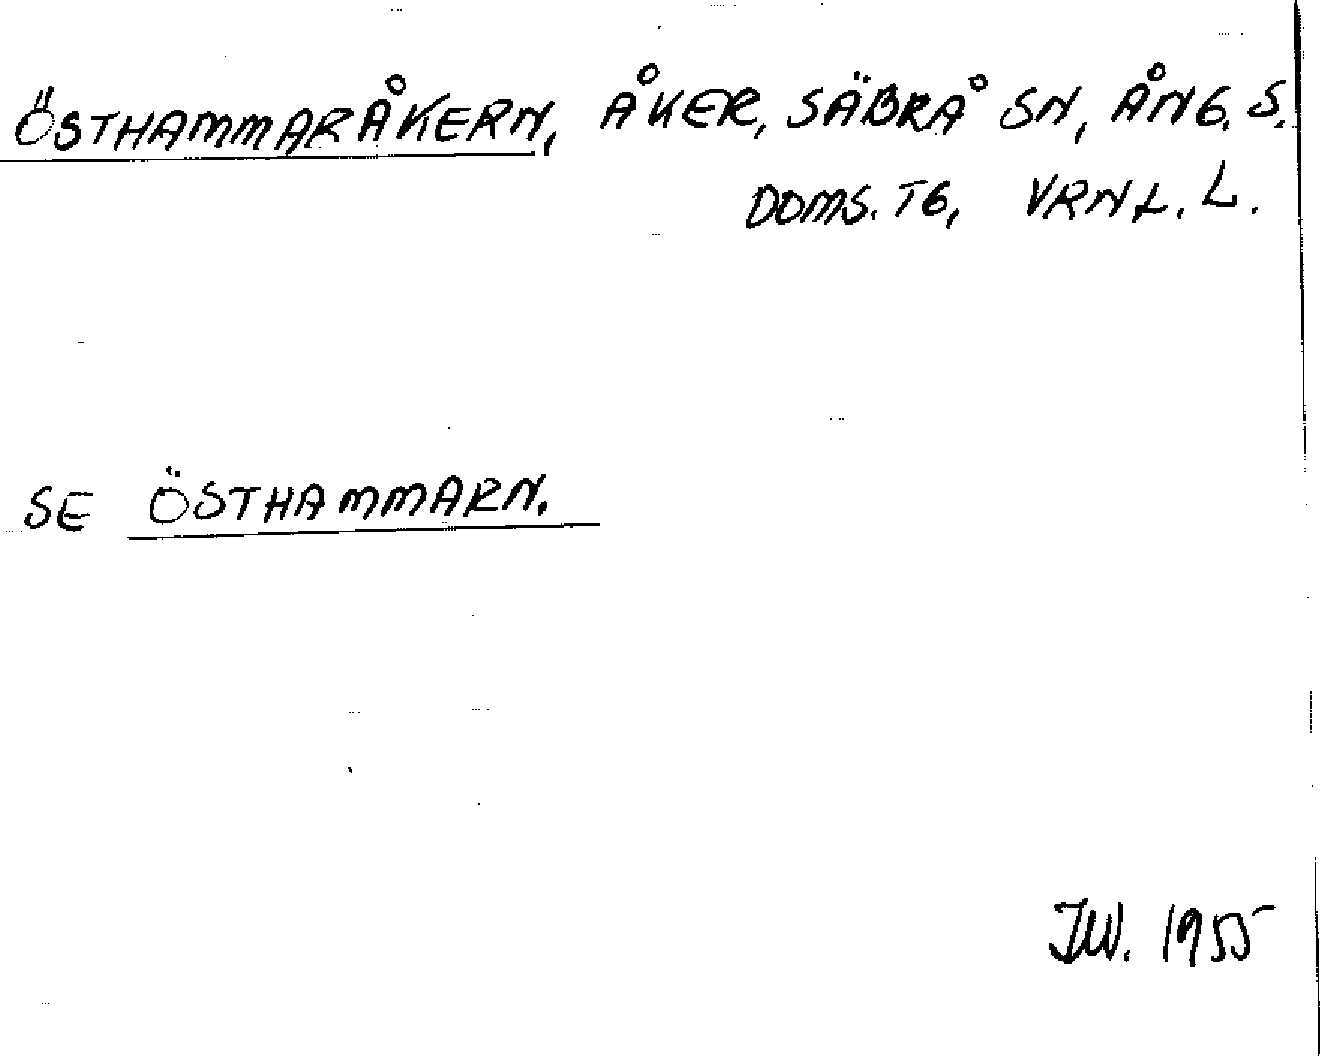 ÖSTHAMMARÅKERN, ÅKER, SÄBRÅ SN, ÅNG. S.
DOMS. TG, VRNL. L.
SE ÖSTHAMMARN.
JW. 1955